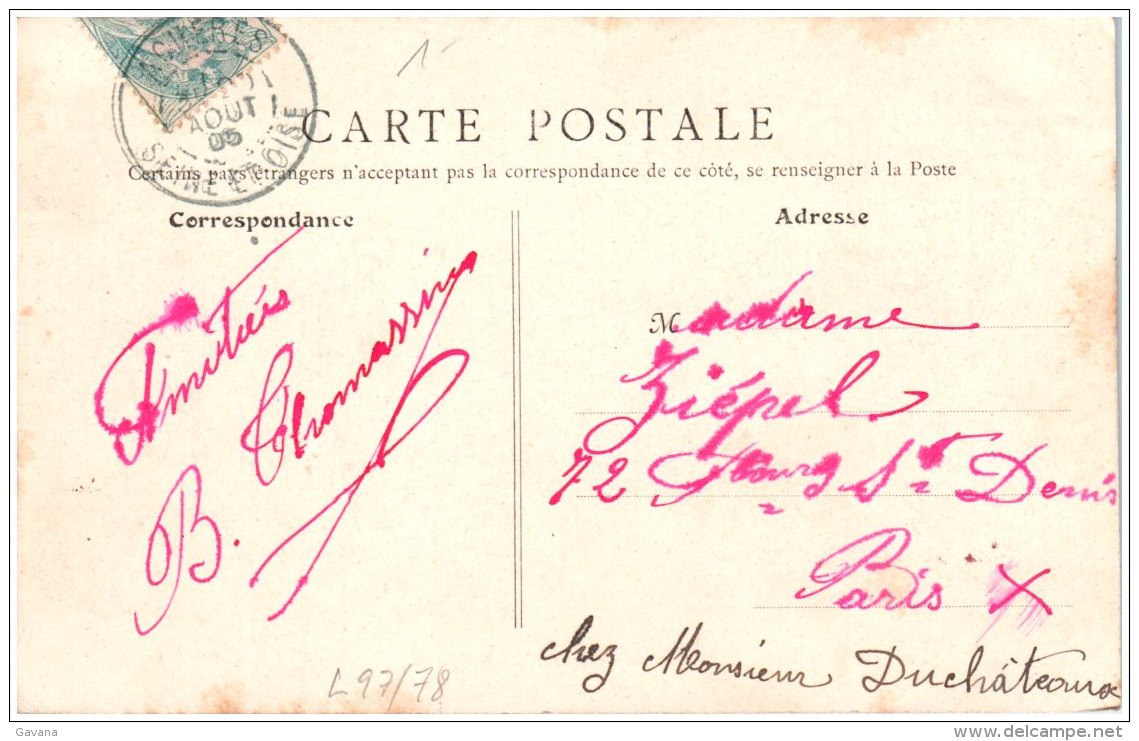 1-
AOUT
05
SEINE ET OISE
CARTE POSTALE
Certains pays étrangers n'acceptant pas la correspondance de ce côté, se renseigner à la Poste
Correspondance
Adresse
Amitiés
B. Thomassin
Madame
Ziépel
72 Fbourg St Denis
Paris X
chez Monsieur Duchâteaux
L97/78
Gavana
delcampe.net